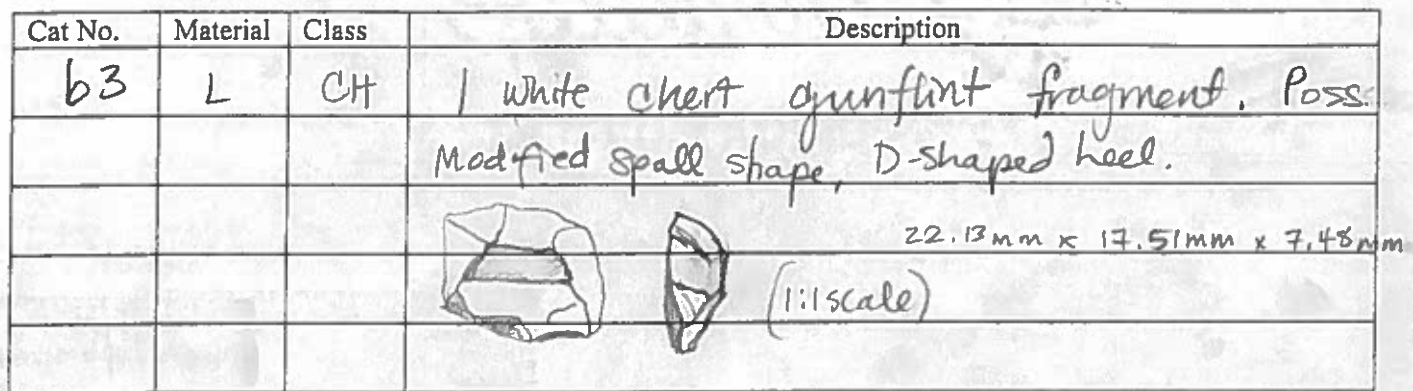 Cat No. Material Class Description
b3 L CH 1 white chert gunflint fragment. Poss.
Modified spall shape, D-shaped heel.
22.13mm x 17.51mm x 7.48mm
(1:1 scale)